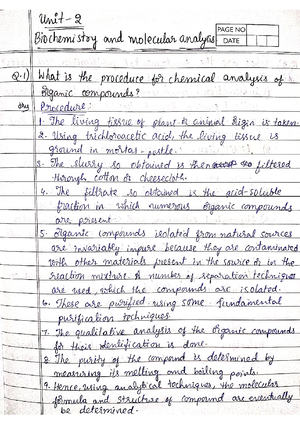 Unit - 2
Biochemistry and molecular analysis
PAGE NO
DATE
Q.1) What is the procedure for chemical analysis of
organic compounds?
Ans Procedure:
1. The living tissue of plant & animal origin is taken.
2. Using trichloroacetic acid, the living tissue is
ground in mortar - pestle.
3. The slurry so obtained is then filtered
through cotton or cheesecloth.
4. The filtrate so obtained is the acid-soluble
fraction in which numerous organic compounds
are present.
5. Organic compounds isolated from natural sources
are invariably impure because they are contaminated
with other materials present in the source or in the
reaction mixture. A number of separation techniques
are used, which the compounds are isolated.
6. These are purified using some fundamental
purification techniques.
7. The qualitative analysis of the organic compounds
for their identification is done.
8. The purity of the compound is determined by
measuring its melting and boiling points.
9. Hence, using analytical techniques, the molecular
formula and structure of compound are eventually
be determined.